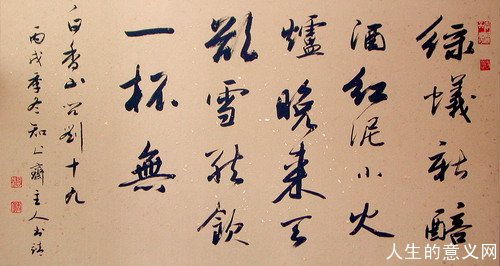 綠蟻新醅
酒紅泥小火
爐晚來天
欲雪能飲
一杯無
白香山問劉十九
丙戌季冬知齋主人書
人生的意义网